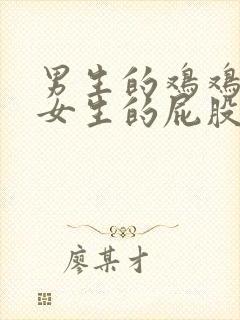 男生的鸡鸡
女生的屁股
廖某才